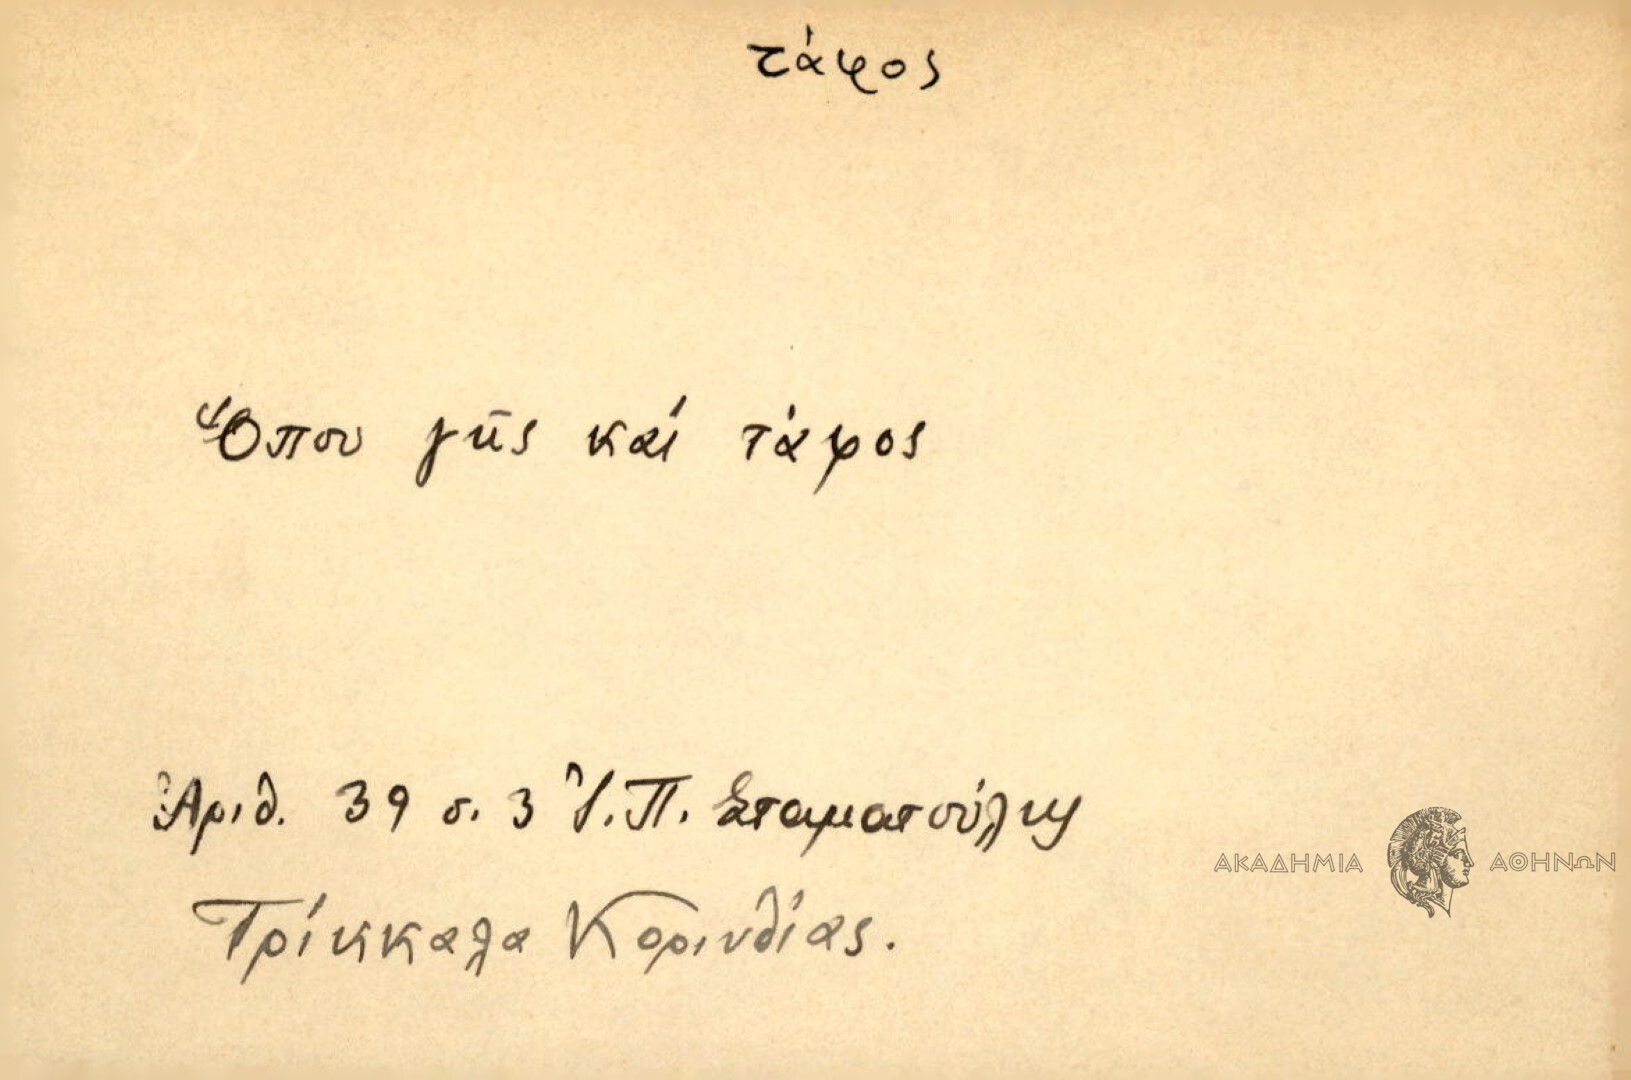 τάφος
Ὅπου γῆς καί τάφος
Ἀριθ. 39 σ. 3 Ἰ. Π. Σταματούλης
Τρίκκαλα Κορινθίας.
ΑΚΑΔΗΜΙΑ ΑΘΗΝΩΝ